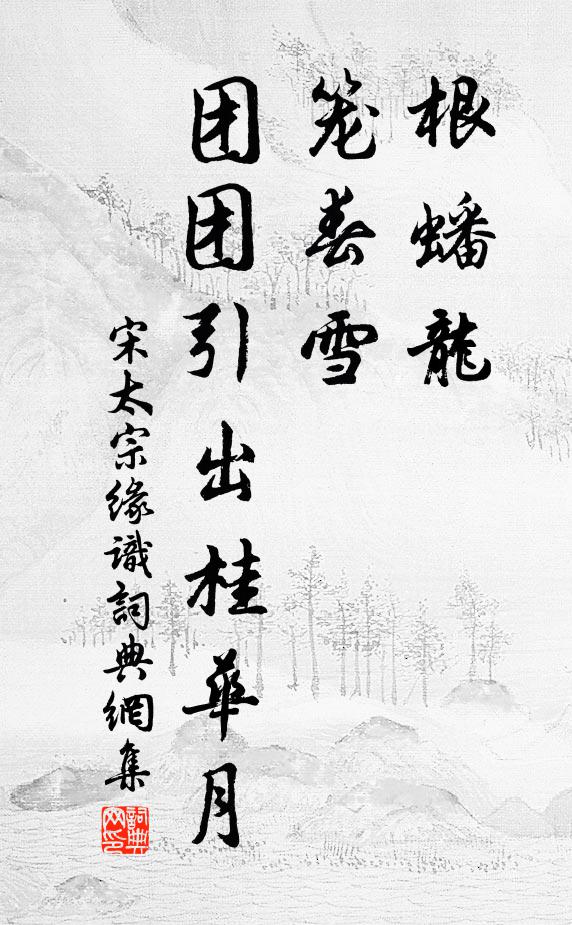 根蟠龍
笼春雪
团团引出桂華月
宋太宗緣識詞典網集
詞典
网印